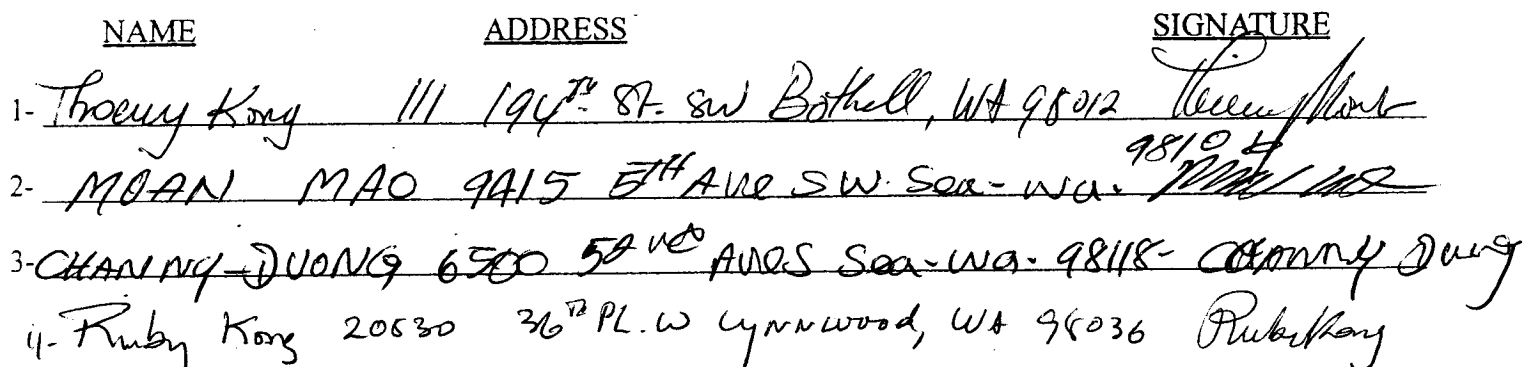 NAME ADDRESS SIGNATURE
1- Thoeuy Kong 111 194TH St. SW Bothell, WA 98012
98104
2- MOAN MAO 9415 5TH Ave SW. Sea- wa.
3- CHANNY-DUONG 6500 52ND Ave S Sea-wa. 98118- CHANNY Duong
4- Ruby Kong 20530 36TH PL. W Lynnwood, WA 98036 Ruby Kong